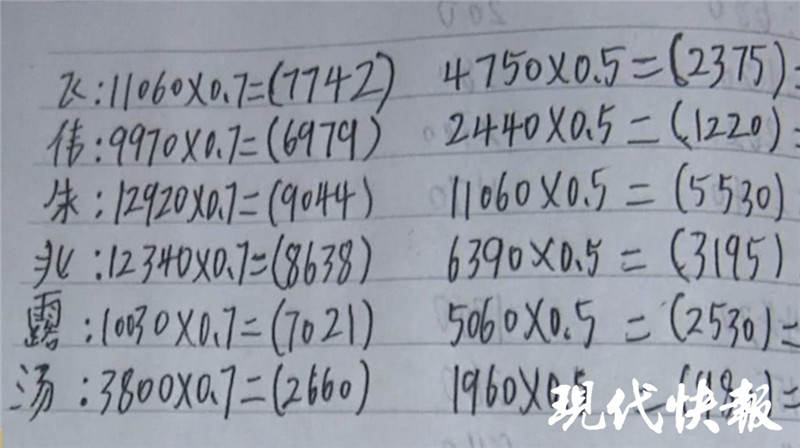 飞:11060X0.7=(7742) 4750X0.5=(2375)=
伟:9970X0.7=(6979) 2440X0.5=(1220)=
朱:12920X0.7=(9044) 11060X0.5=(5530)
兆:12340X0.7=(8638) 6390X0.5=(3195)
露:10030X0.7=(7021) 5060X0.5=(2530)=
汤:3800X0.7=(2660) 1960X0.5=
现代快報